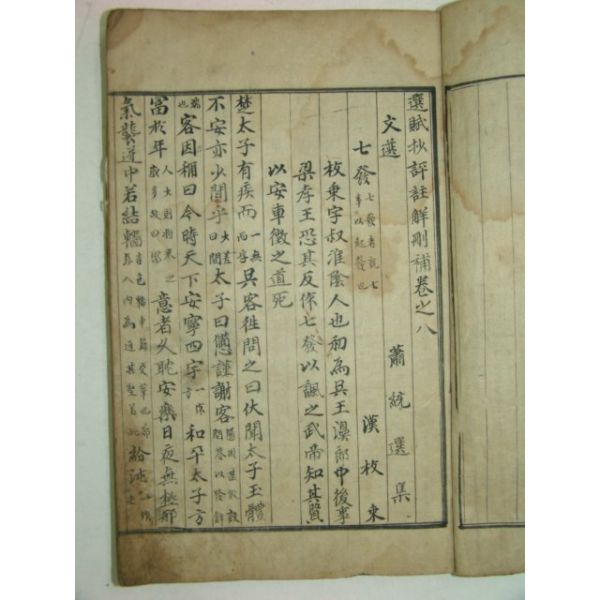 選賦抄評註解刪補卷之八
文選 蕭統選集
七發 七發者說七事以起發也 漢枚乘
枚乘字叔淮陰人也初為吳王濞郎中後事
梁孝王恐其反作七發以諷之武帝知其賢
以安車徵之道死
楚太子有疾而 一無而字 吳客往問之曰伏聞太子玉體
不安亦少間乎 太子曰憊謹謝客
客因稱曰今時天下安寧四宇 和平太子方
富於年 意者久耽安樂日夜無極邪
氣襲逆中若結轖